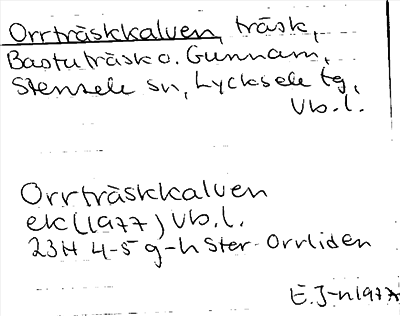 Orrträskkalven, träsk,
Bastuträsk o. Gunnarn,
Stensele sn, Lycksele tg,
Vb.l.
Orrträskkalven
ek (1977) Vb.l.
23H 4-5 g-h Ster-Orrliden
E.J-n 1977